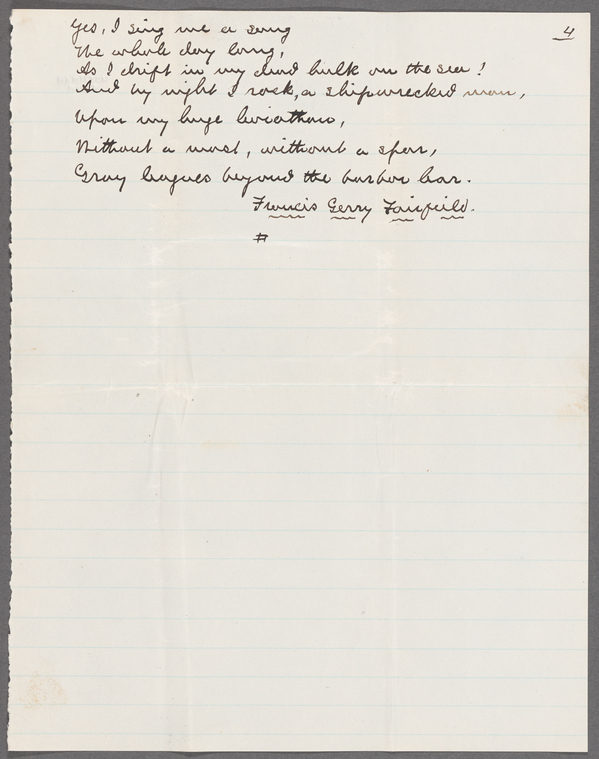 4
Yes, I sing me a song
The whole day long,
As I drift in my dead hulk on the sea!
And by night I rock, a shipwrecked man,
Upon my huge leviathan,
Without a mast, without a spar,
Gray leagues beyond the harbor bar.
Francis Gerry Fairfield.
#